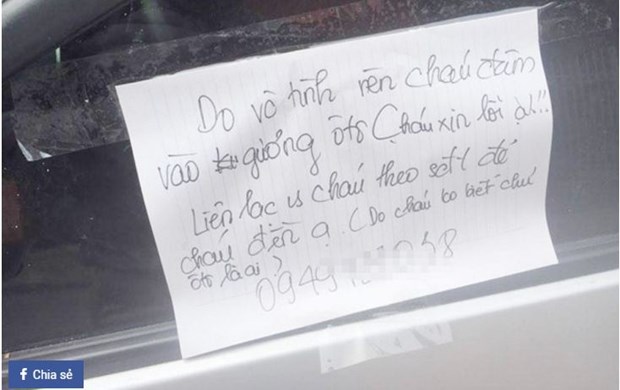 Do vô tình nên cháu đâm
vào gương ôtô Cháu xin lỗi ạ!!
Liên lạc vs cháu theo sđt để
cháu đền ạ. (Do cháu ko biết chủ
ôtô là ai)
0949 058
Chia sẻ